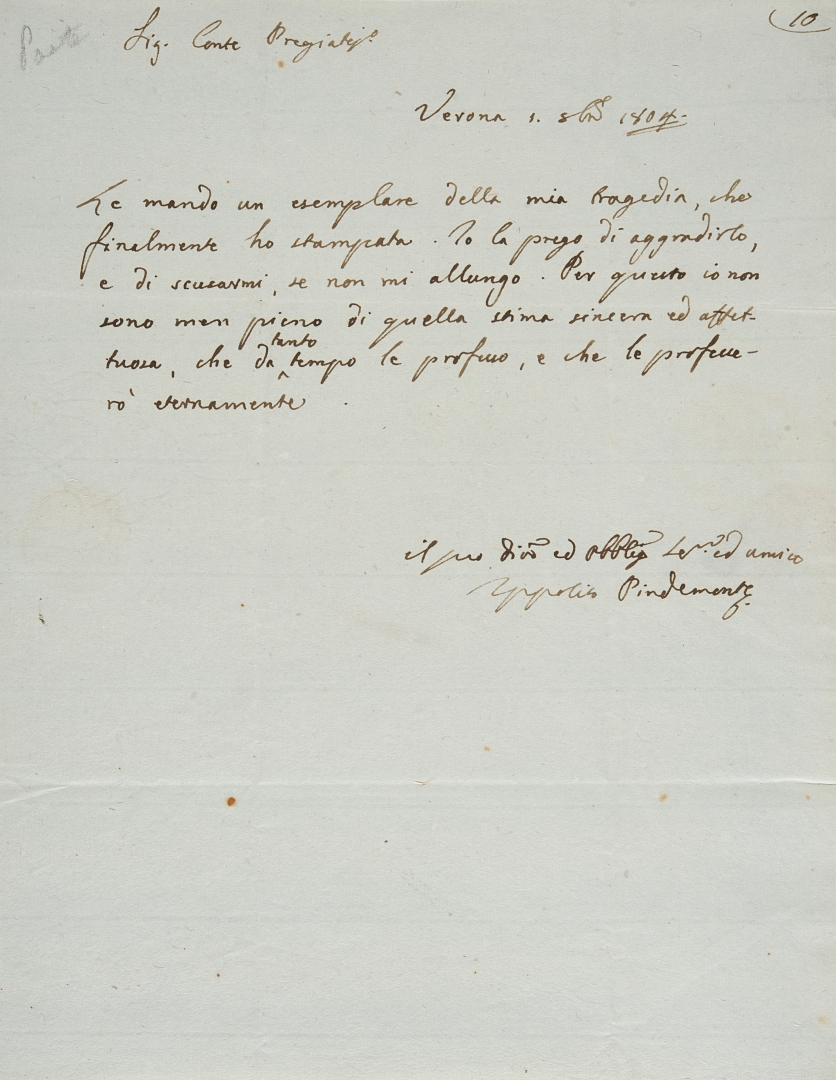 10
Sig. Conte Pregiatis.o
Verona 1. 8bre 1804.
Le mando un esemplare della mia tragedia, che
finalmente ho stampata. Io la prego di aggradirlo,
e di scusarmi, se non mi allungo. Per questo io non
sono men pieno di quella stima sincera ed affet-
tuosa, che da tanto tempo le professo, e che le professe-
rò eternamente.
il suo div.mo ed obblig.mo Se.re ed amico
Ippolito Pindemonte